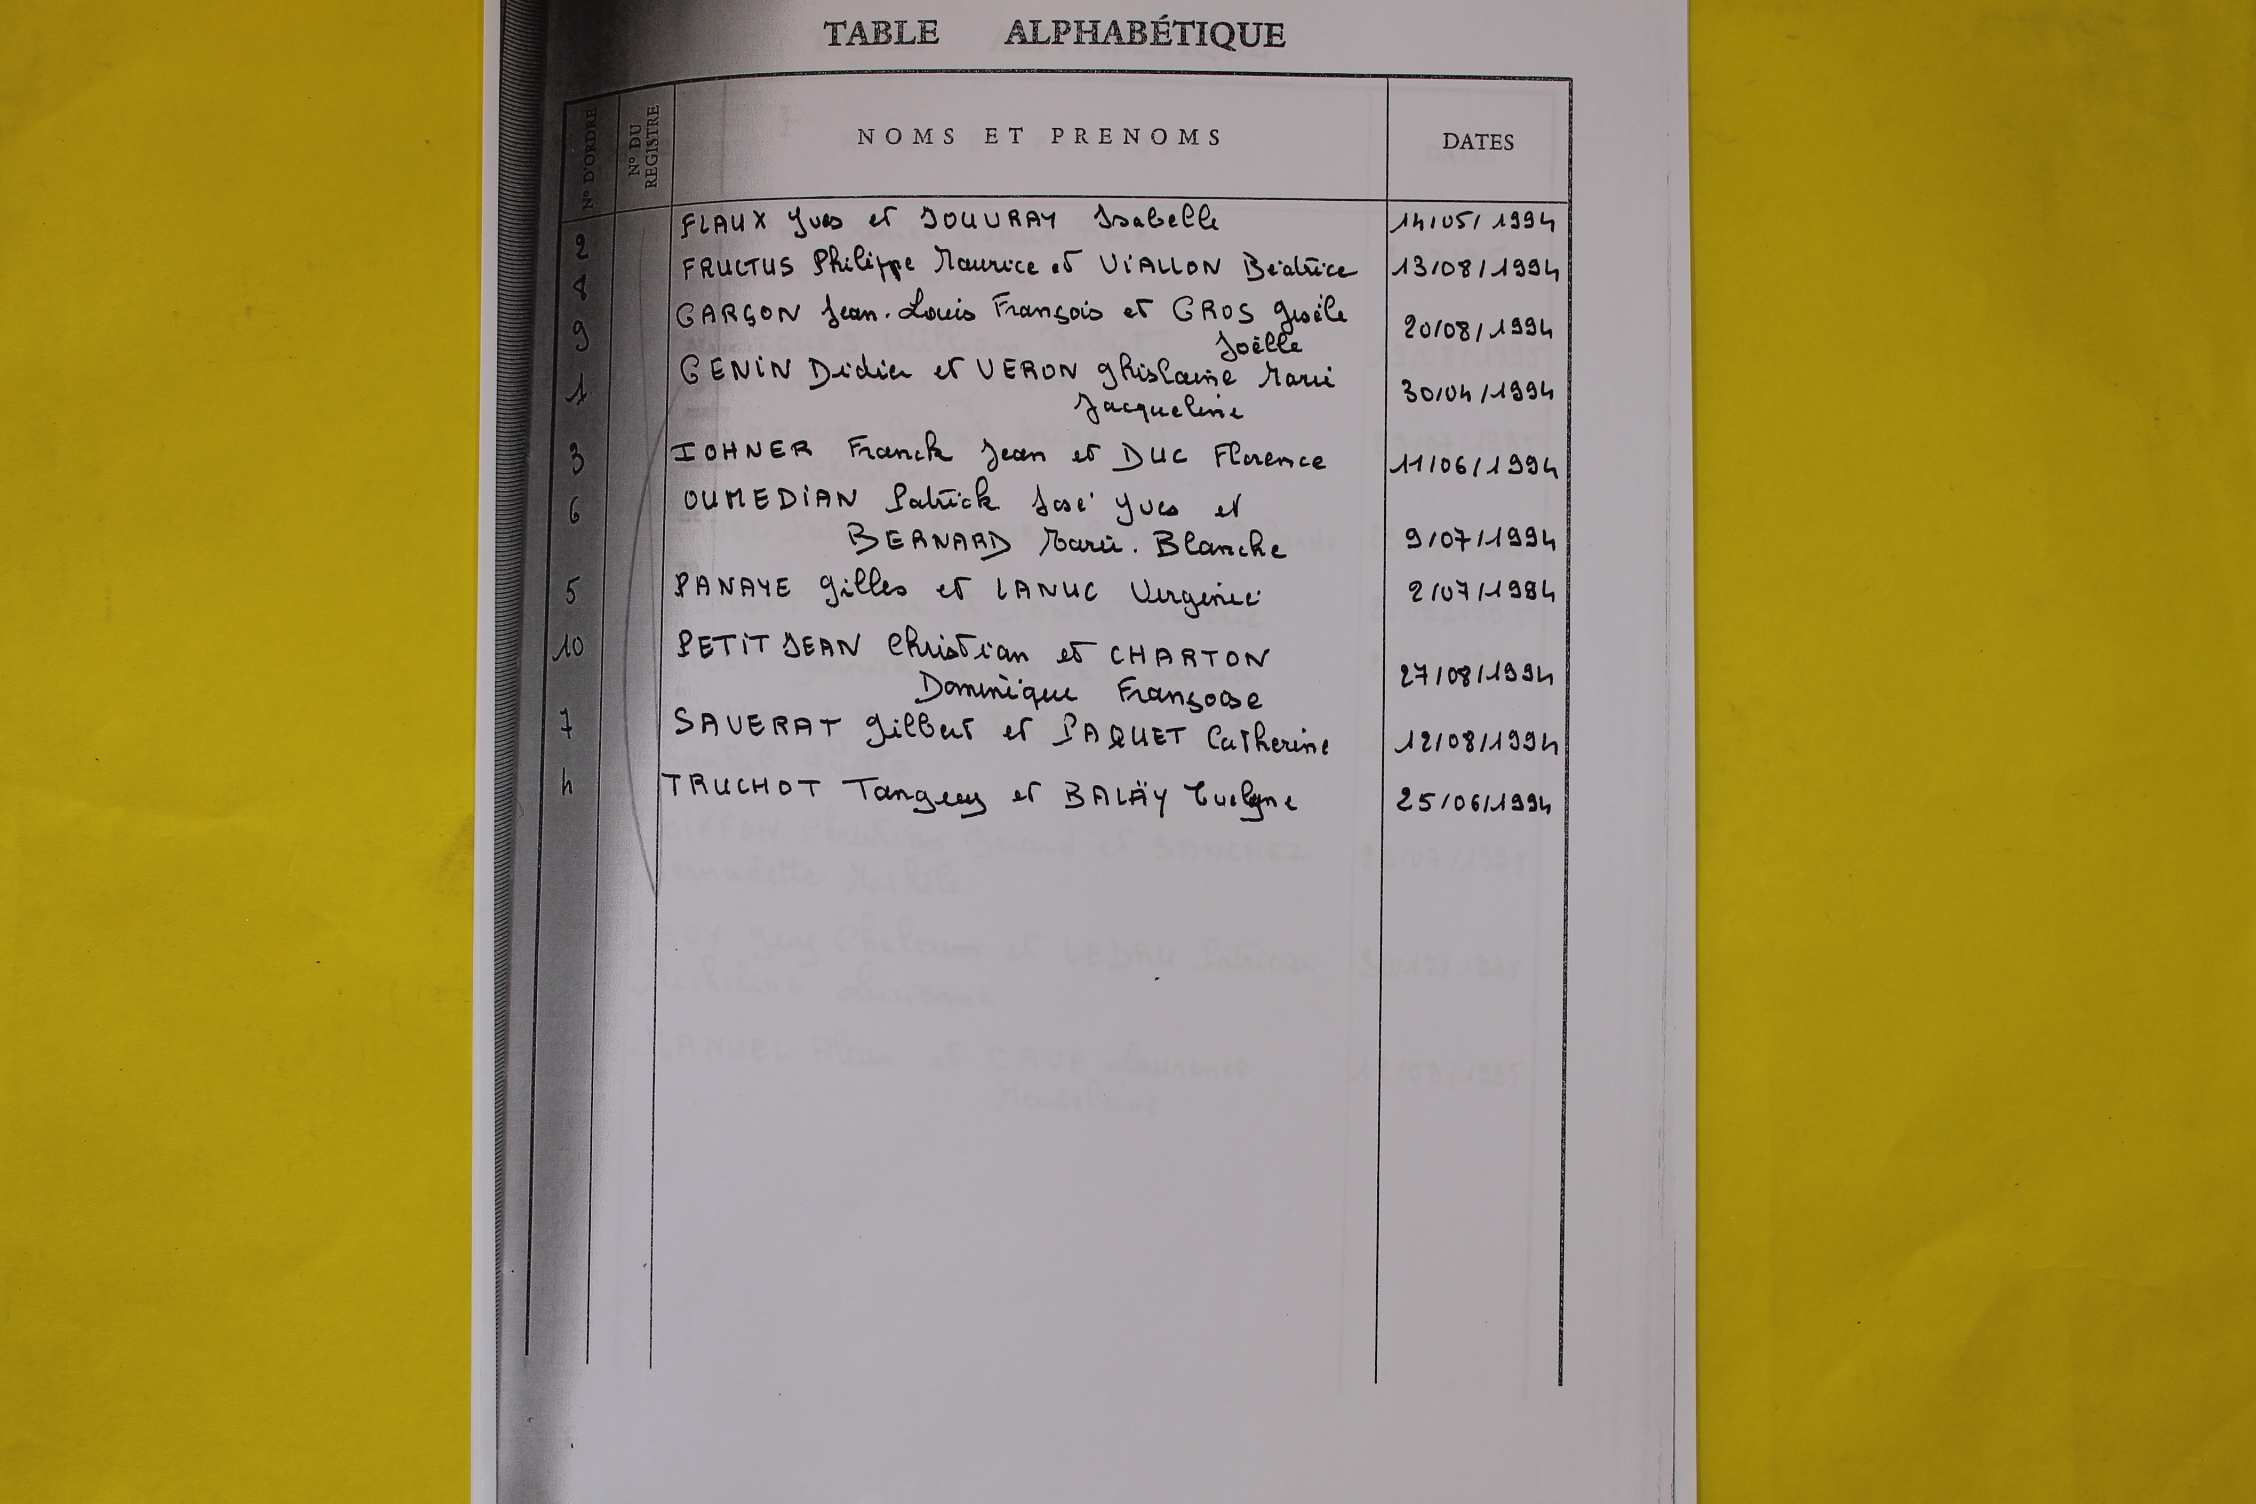 TABLE ALPHABÉTIQUE
N° D'ORDRE N° DU REGISTRE NOMS ET PRENOMS DATES
2 FLAUX Yves et JOUVRAY Isabelle 14/05/1994
8 FRUCTUS Philippe Maurice et ViALLON Béatrice 13/08/1994
9 GARÇON Jean-Louis François et GROS Gisèle 20/08/1994
Joëlle
1 GENiN Didier et VERON Ghislaine Marie 30/04/1994
Jacqueline
3 IOHNER Franck Jean et DUC Florence 11/06/1994
6 OUMEDiAN Patrick José Yves et
BERNARD Marie-Blanche 9/07/1994
5 PANAYE Gilles et LANUC Virginie 2/07/1984
10 PETiTJEAN Christian et CHARTON
Dominique Françoise 27/08/1994
7 SAVERAT Gilbert et PAQUET Catherine 12/08/1994
4 TRUCHOT Tanguy et BALAŸ Evelyne 25/06/1994